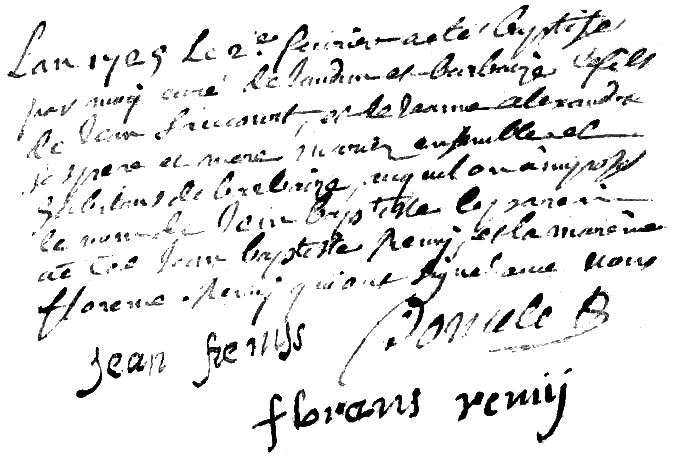 Lan 1725 Le 2e feuvrier a ete baptise
par moy curé de laudun et barbaize le fils
de Jean Saucourt, et de Jeanne alexandre
ses pere et mere mariez ensemble et
habitans de barbaize, auquel on a imposé
le nom de Jean baptiste le parein
a ete Jean baptiste Remy et la mareine
florence Remy qui ont signé avec nous
jean remys
florens remij